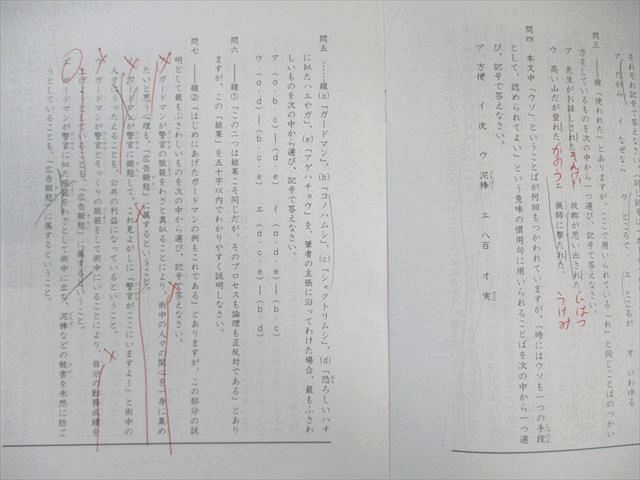 それぞれ記号で答えなさい。
ア だから イ なぜなら ウ ところで エ ところが オ いわゆる
問三 ――線「使われた」とありますが、ここで用いられている「れ」と同じことばのつかい
方をしているものを次の中から一つ選び、記号で答えなさい。
ア 先生がお話しされた。 イ 故郷が思い出された。
そんけい じはつ
ウ 高い山だが登れた。 エ 猟師に撃たれた。
かのう うけみ
問四 本文中「ウソ」ということばが何回もつかわれていますが、「時にはウソも一つの手段
として、認められてよい」という意味の慣用句に用いられることばを次の中から一つ選
び、記号で答えなさい。
ア 方便 イ 皮 ウ 泥棒 エ 八百 オ 実
問五 ……線(a)「ガードマン」、(b)「コノハムシ」、(c)「シャクトリムシ」、(d)「恐ろしいハチ
に似たハエやガ」、(e)「アゲハチョウ」を、筆者の主張に沿ってわけた場合、最もふさわ
しいものを次の中から選び、記号で答えなさい。
ア (a・b・c)―(d・e) イ (a・c・d)―(b・e)
ウ (a・d)―(b・c・e) エ (a・c・e)―(b・d)
問六 ――線①「この二つは結果こそ同じだが、そのプロセスも論理も正反対である」とあり
ますが、この「結果」を五十字以内でわかりやすく説明しなさい。
問七 ――線②「はじめにあげたガードマンの例もこれである」とありますが、この部分の説
明として最もふさわしいものを次の中から選び、記号で答えなさい。
ア ガードマンが警官の服装をわざと真似ることにより、街中の人々の関心を一身に集め
たいと思う心理も、「広告擬態」に属するということ。
イ ガードマンが警官に擬態して、これ見よがしに「警官がここにいますよ!」と街中の
人々にうったえることも、公共の利益になっているということ。
ウ ガードマンが警官とそっくりの服装をして街中にいることにより、自分の勤務成績を
上げようとしていることも、「広告擬態」に属するということ。
エ ガードマンが警官に似た服装をわざとして街中に立ち、泥棒などの被害を未然に防ご
うとしていることも、「広告擬態」に属するということ。